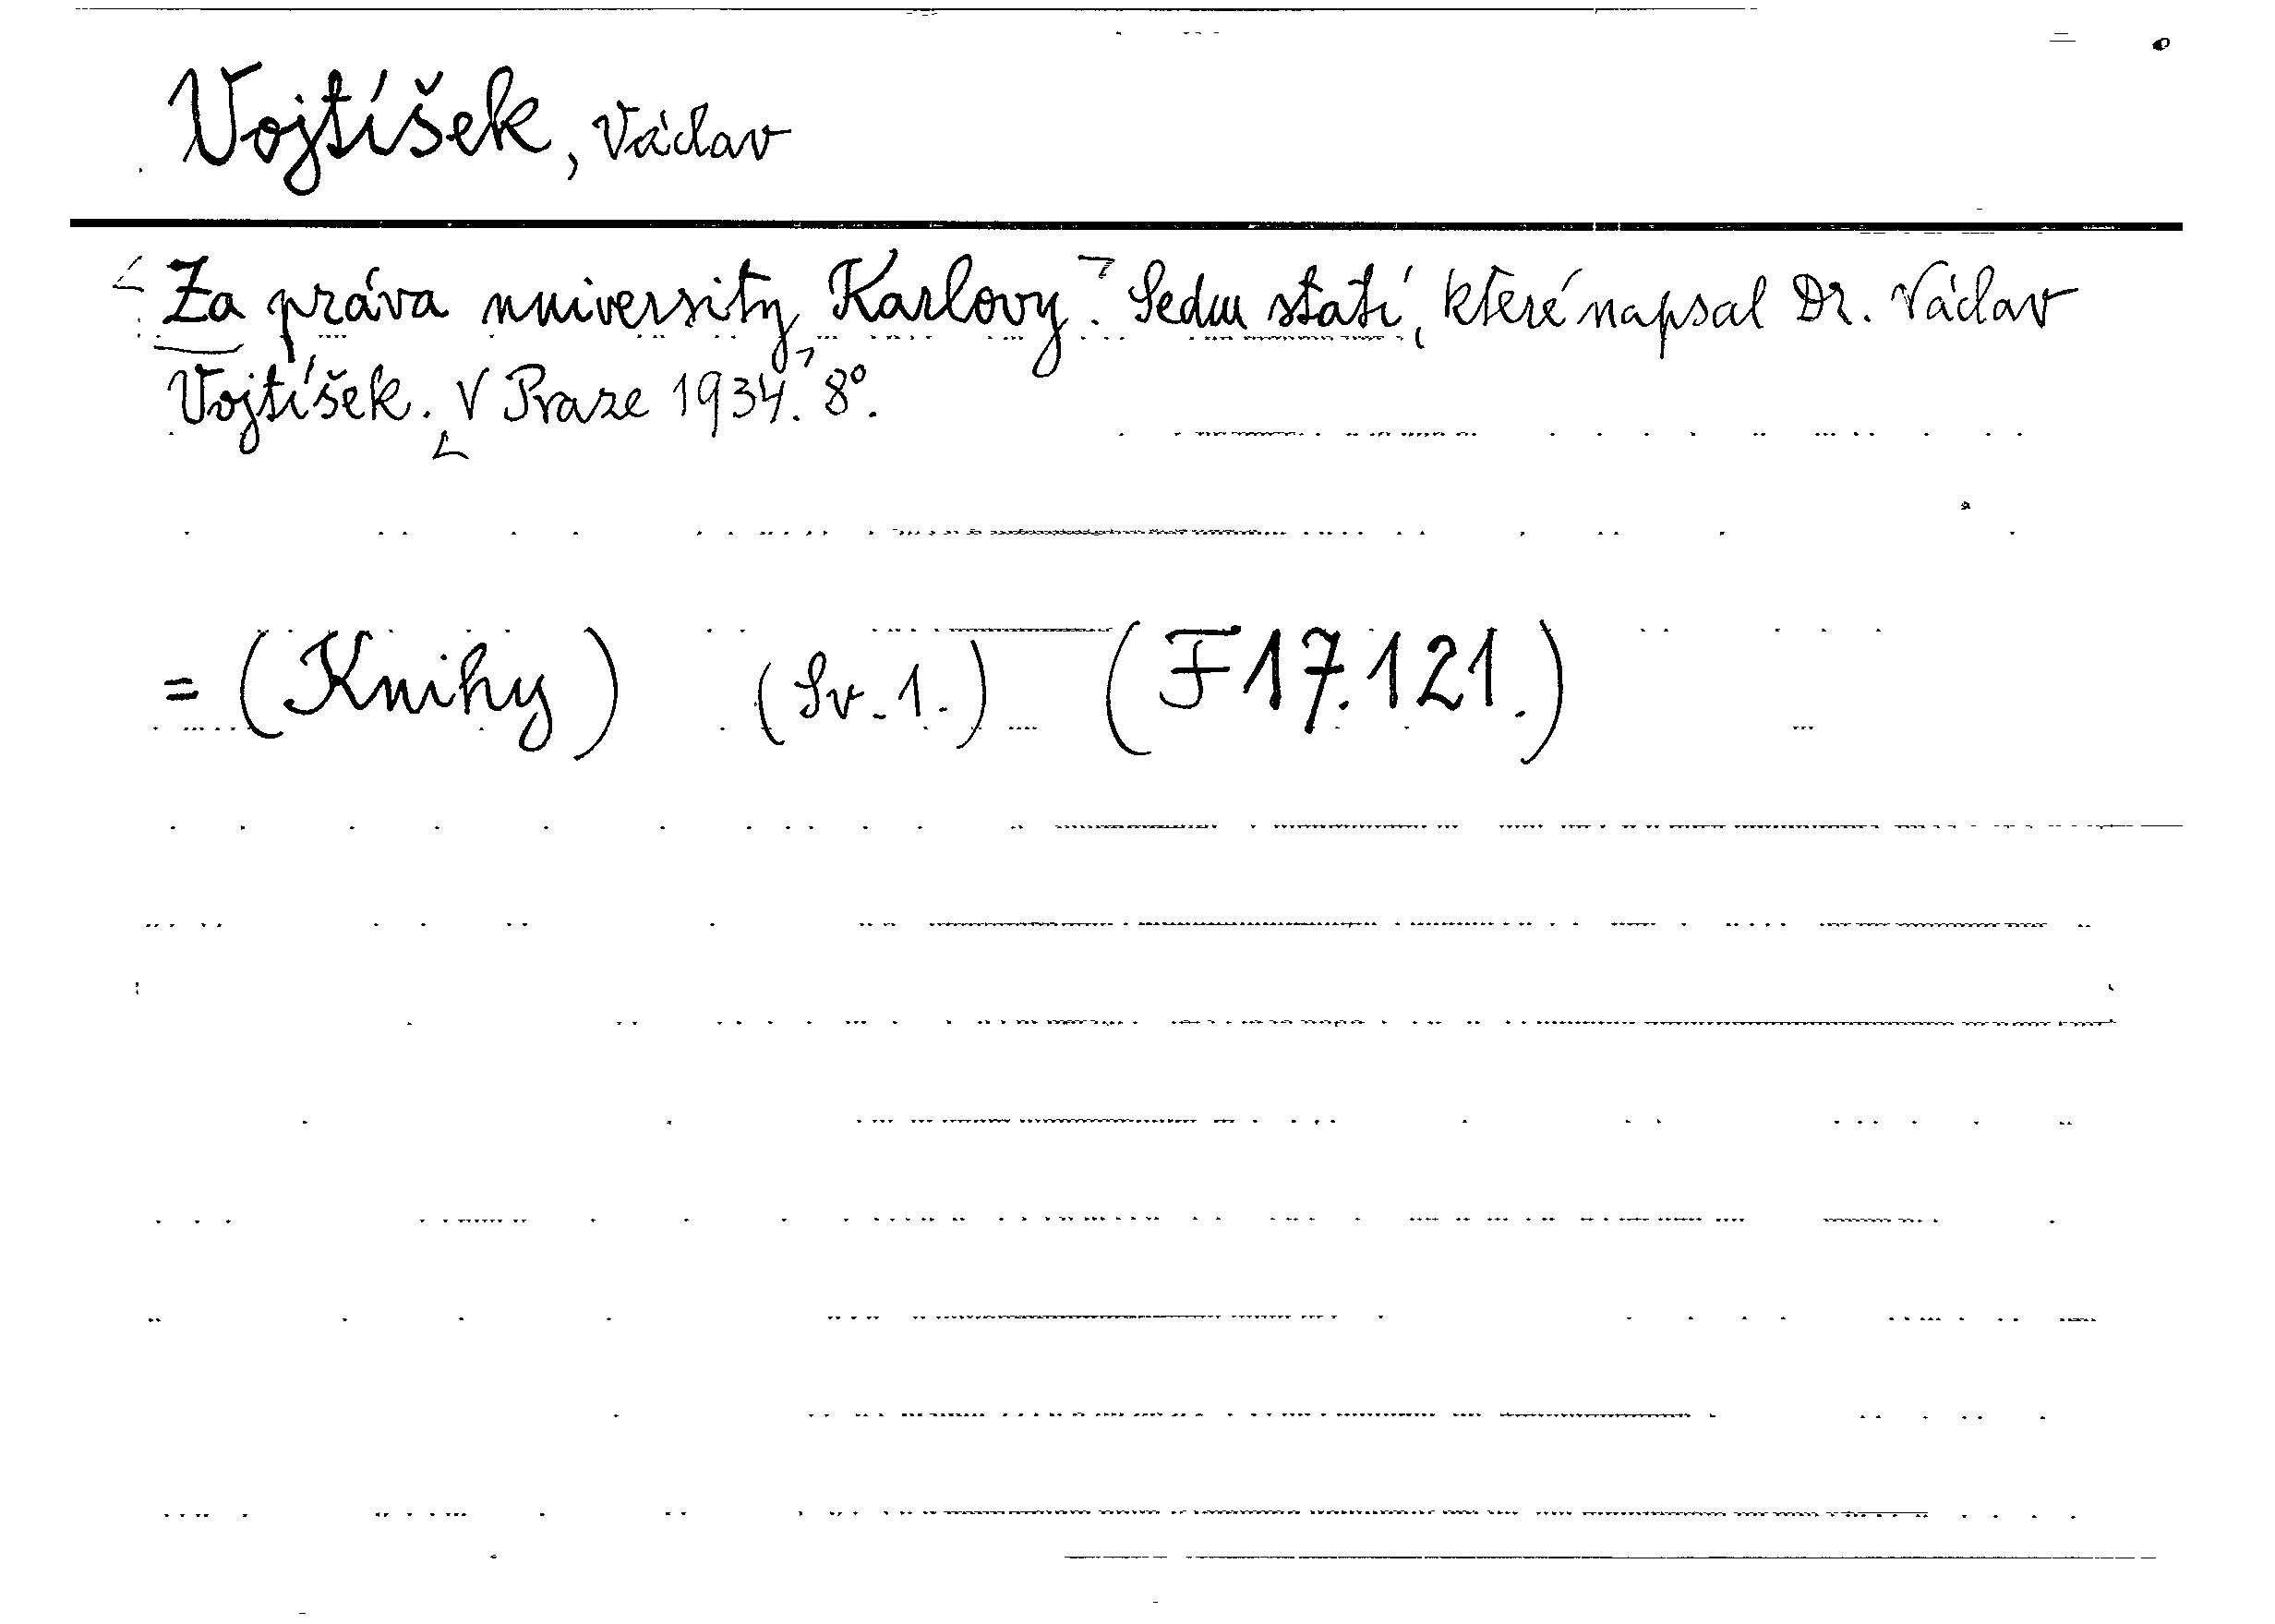 Vojtíšek, Václav
Za práva university Karlovy. Sedm statí, které napsal Dr. Václav
Vojtíšek. V Praze 1934. 8°.
= (Knihy) (Sv. 1.) (F17.121.)